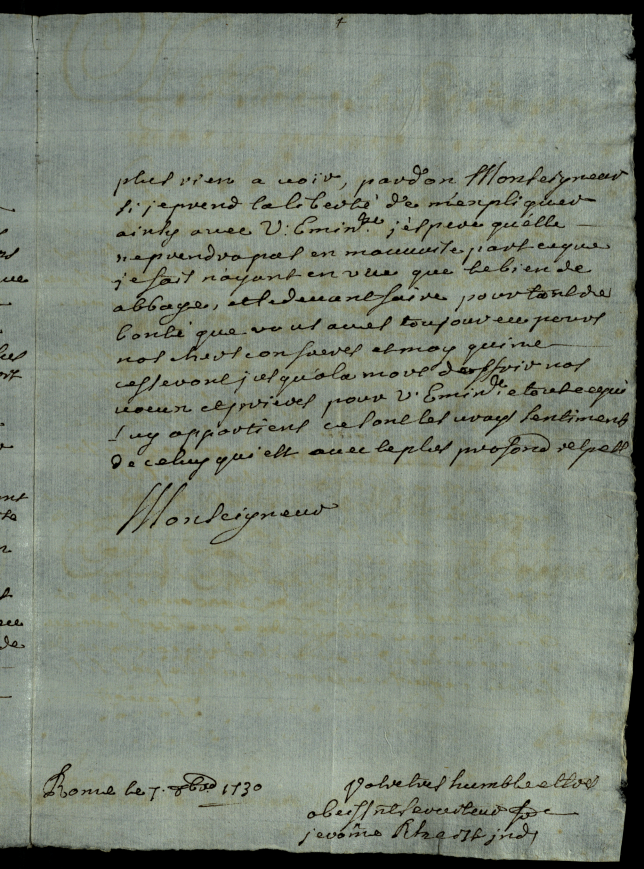 plus rien a voir, pardon Monseigneur
si je prend la liberté de m'expliquer
ainsy avec V: Emin.ce j'espere qu'elle
ne prendra pas en mauvaise part ce que
je fait n'ayant en vue que le bien de
abbaye, et le devant faire pour tant de
bonté que vous aves toujour eu pour
nos chers confreres et moy qui ne
cesseront jusqu'a la mort d'offrir nos
voeux et prieres pour V: Emin.ce et tout ce qui
luy appartient ce sont les vrays sentiments
de celuy qui est avec le plus profond respect
Monseigneur
Rome le 7. 8bre 1730
Votre tres humble et tres
obeissant serviteur
jerome